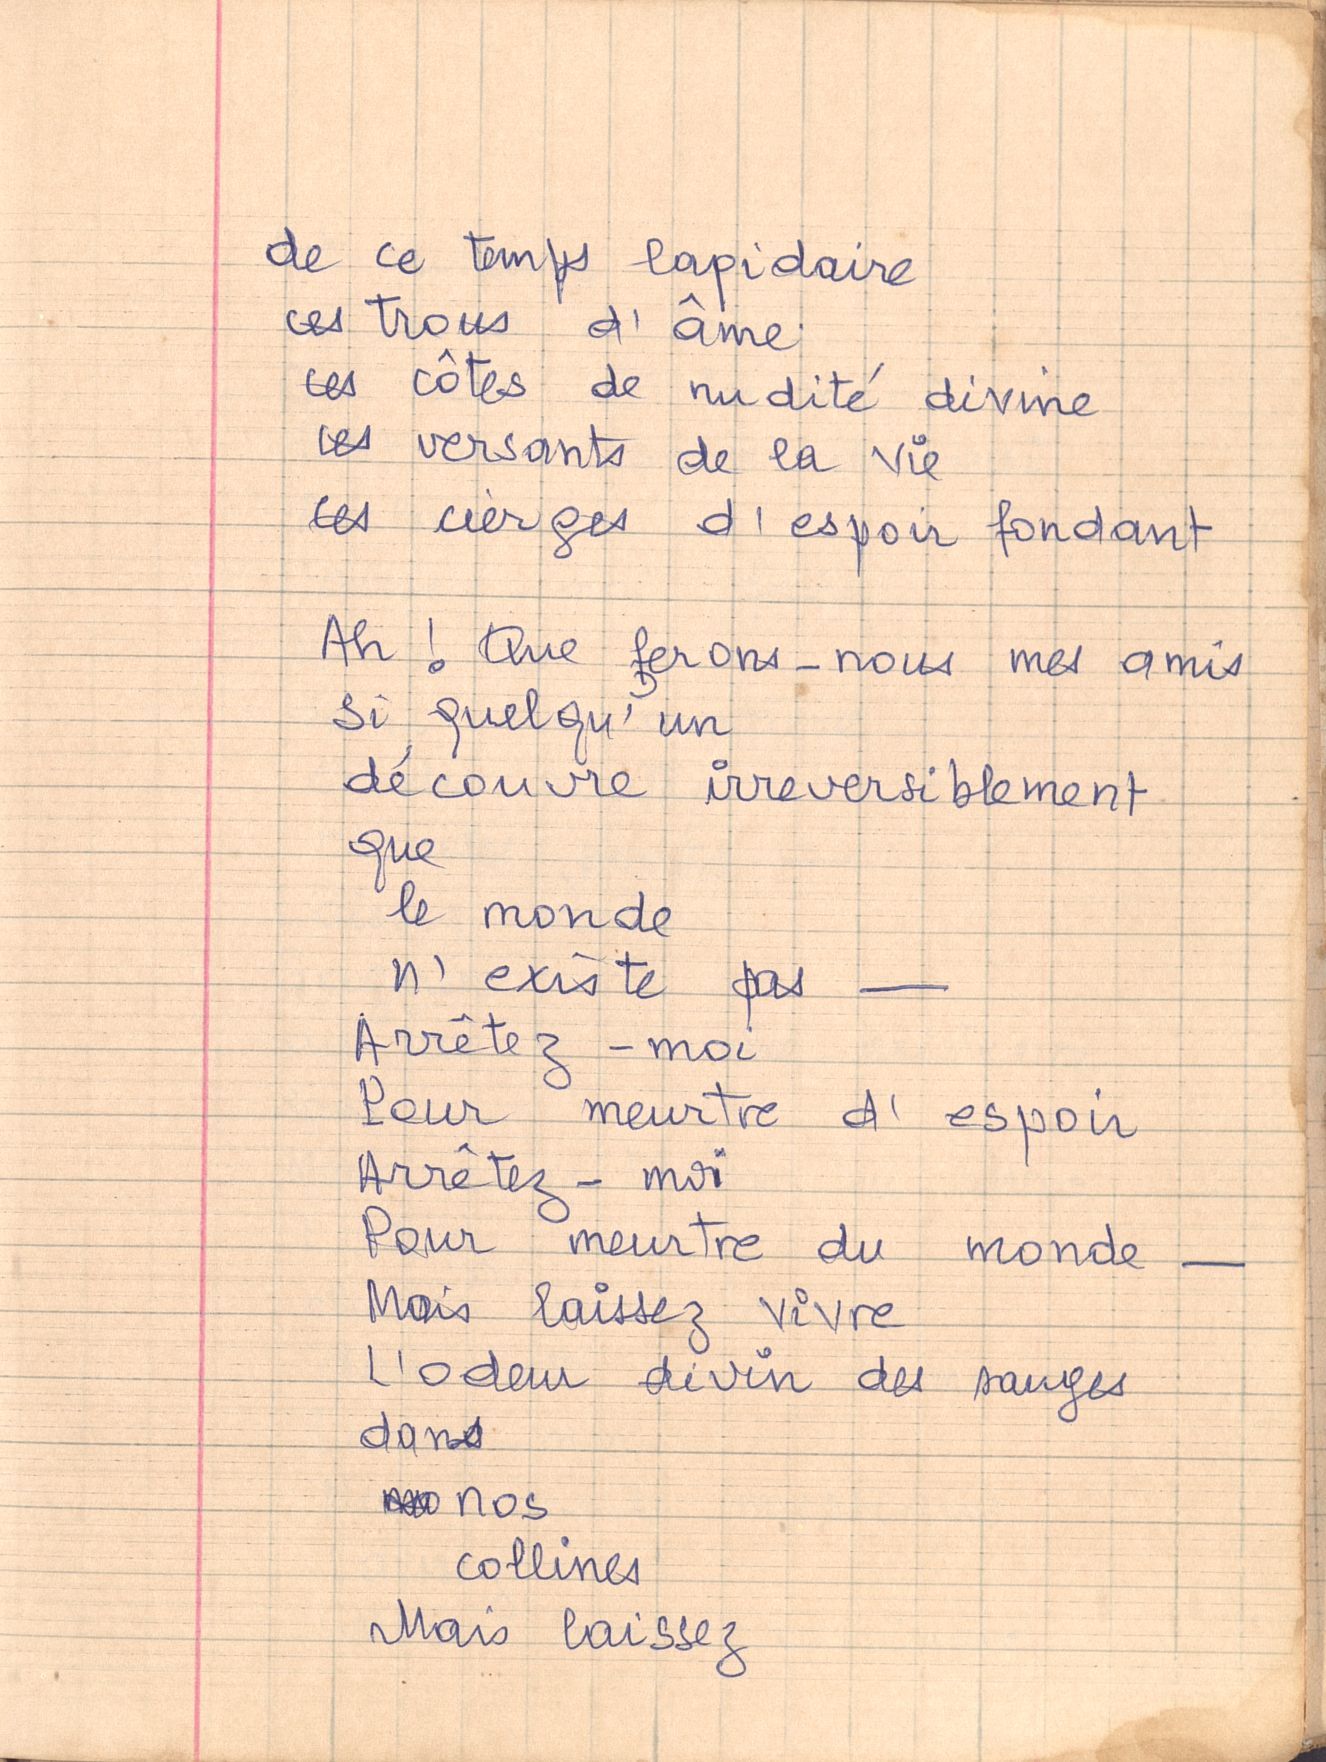 de ce temps lapidaire
ces trous d'âme
ces côtes de nudité divine
ces versants de la vie
ces cierges d'espoir fondant
Ah ! Que ferons-nous mes amis
si quelqu'un
découvre irreversiblement
que
le monde
n'existe pas —
Arrêtez-moi
Pour meurtre d'espoir
Arrêtez-moi
Pour meurtre du monde —
Mais laissez vivre
L'odeur divin des sauges
dans
nos
collines
Mais laissez